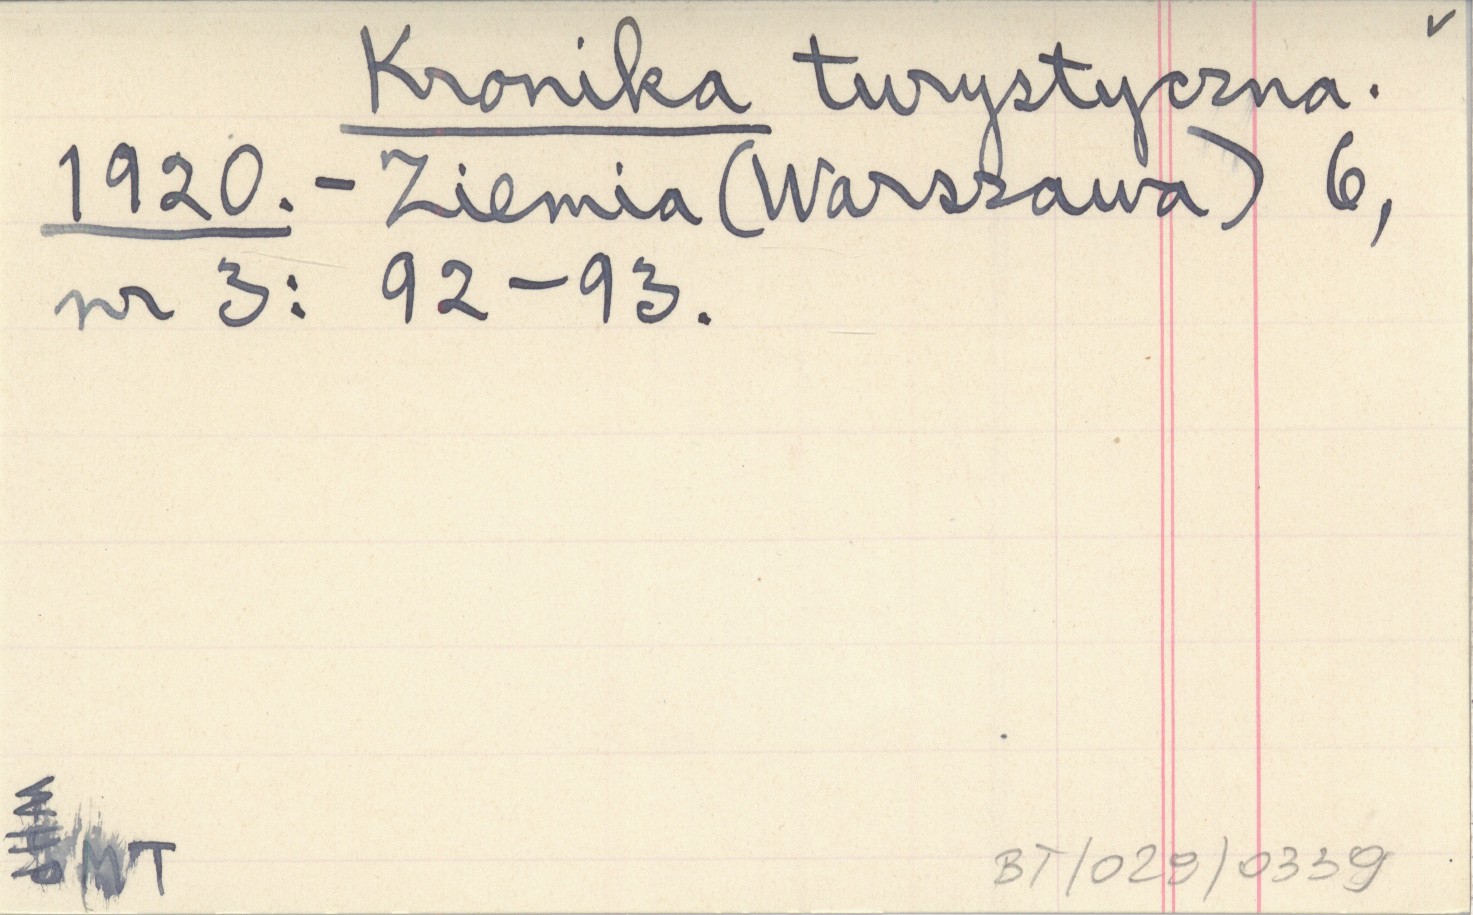 Kronika turystyczna.
1920. - Ziemia (Warszawa) 6,
nr 3: 92-93.
MT
BT/029/0339